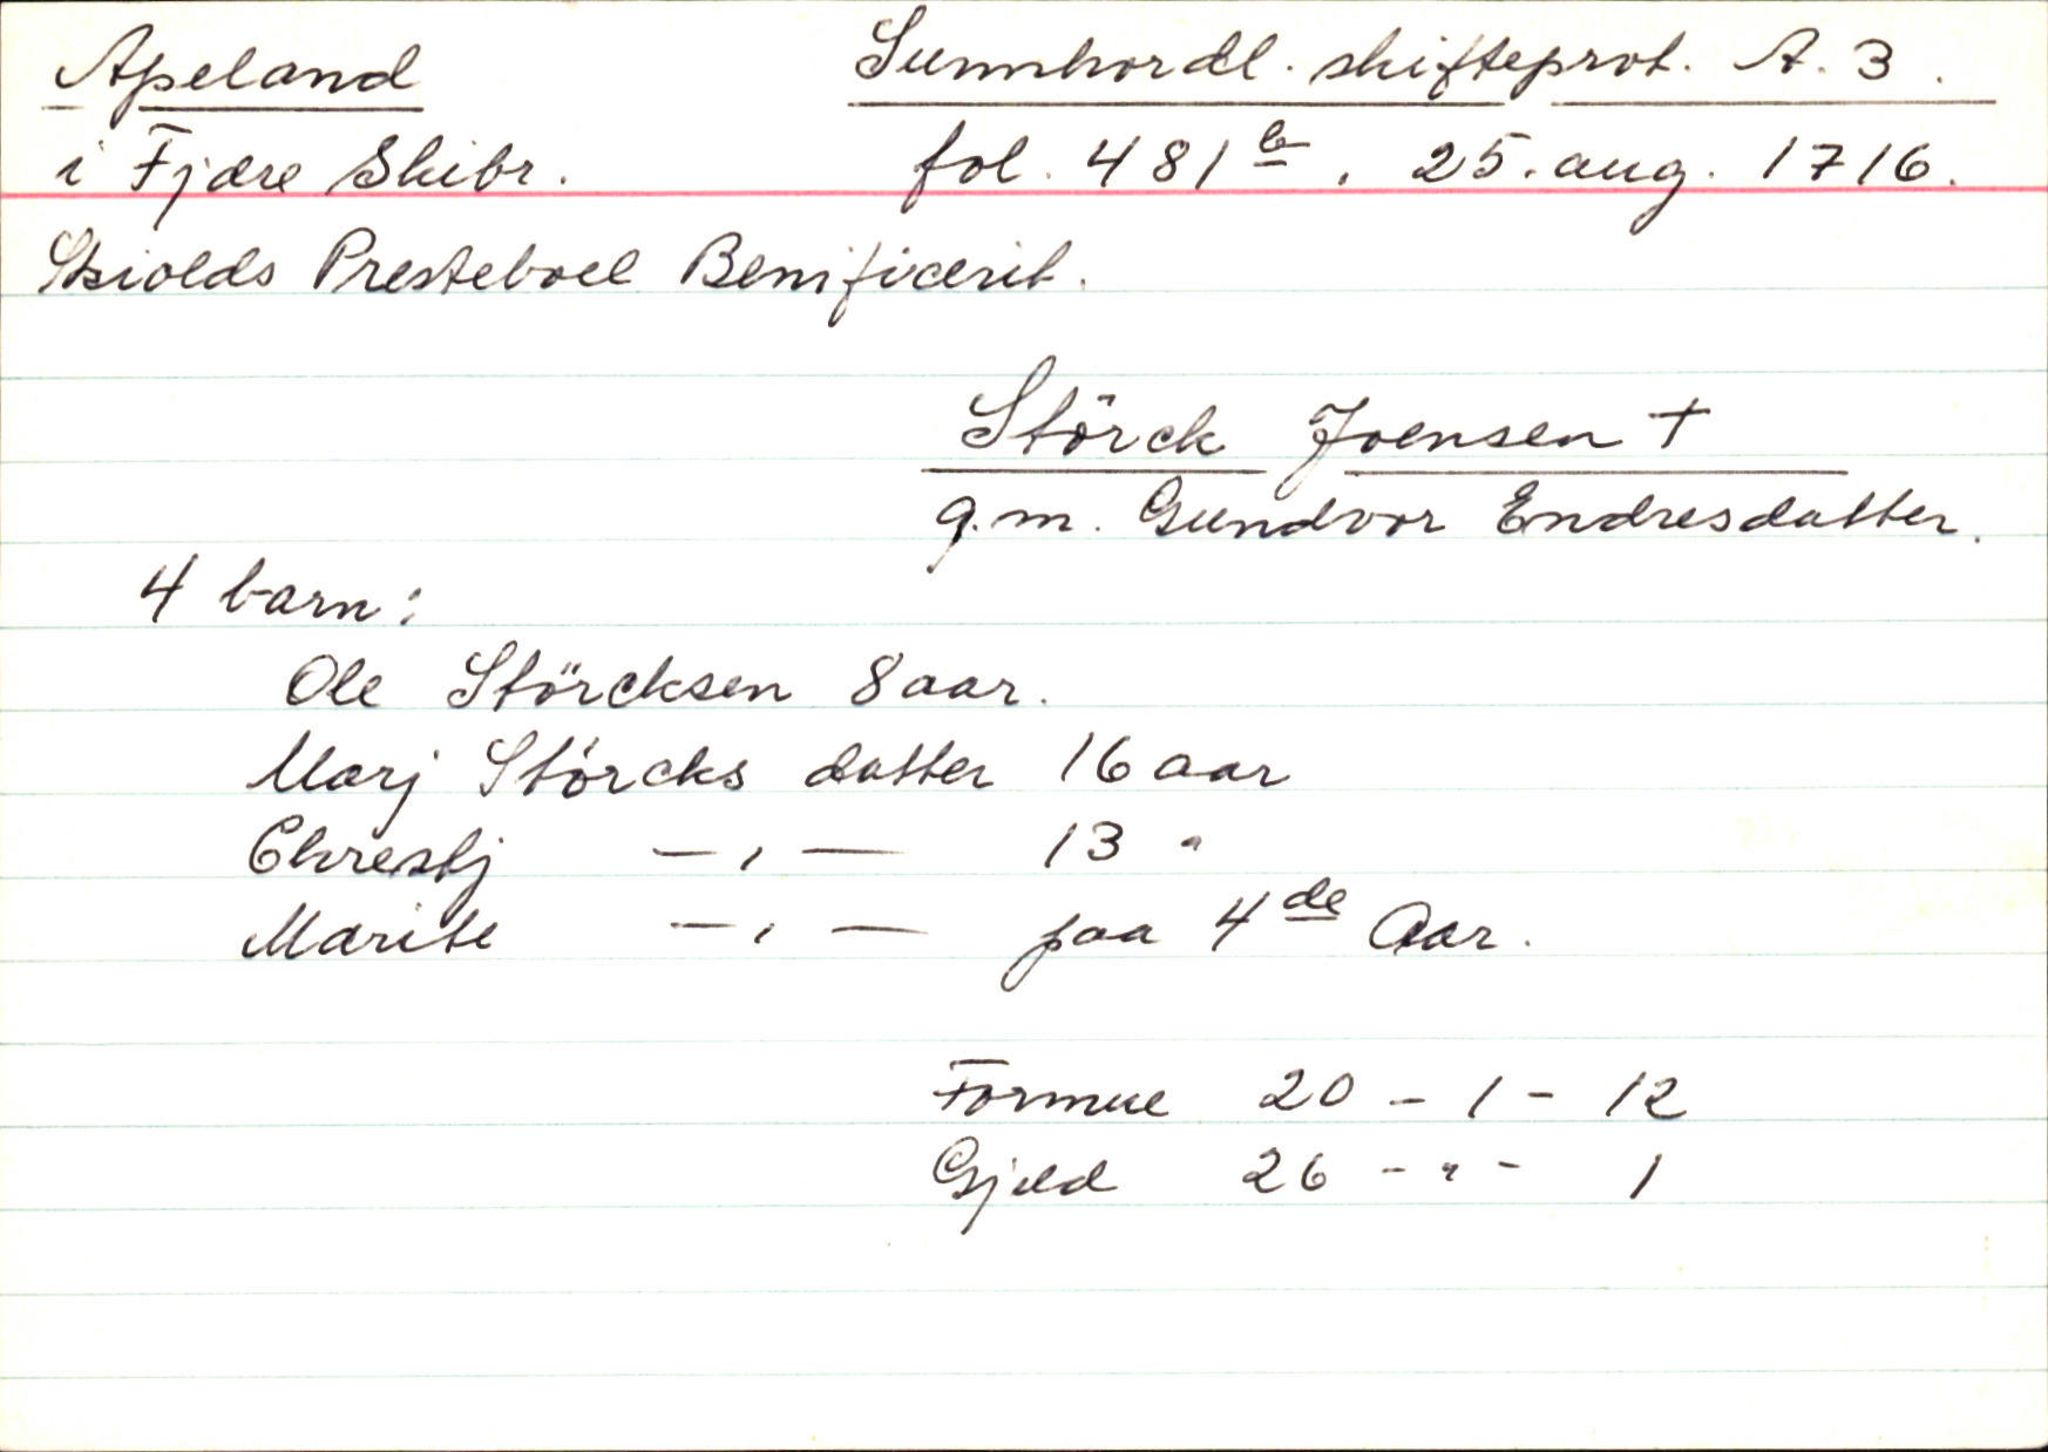 Apeland
Sunnhordl. skifteprot. A. 3.
i Fjære Skibr.
fol. 481 b. 25. aug. 1716.
Skiolds Presteboel Benificerit.
Störck Joensen †
g.m. Gundvor Endresdatter.
4 barn:
Ole Störcksen 8 aar.
Marj Störcks datter 16 aar
Chrestj — , — 13 "
Marite — , — paa 4de Aar.
Formue 20 - 1 - 12
Gjeld 26 - " - 1